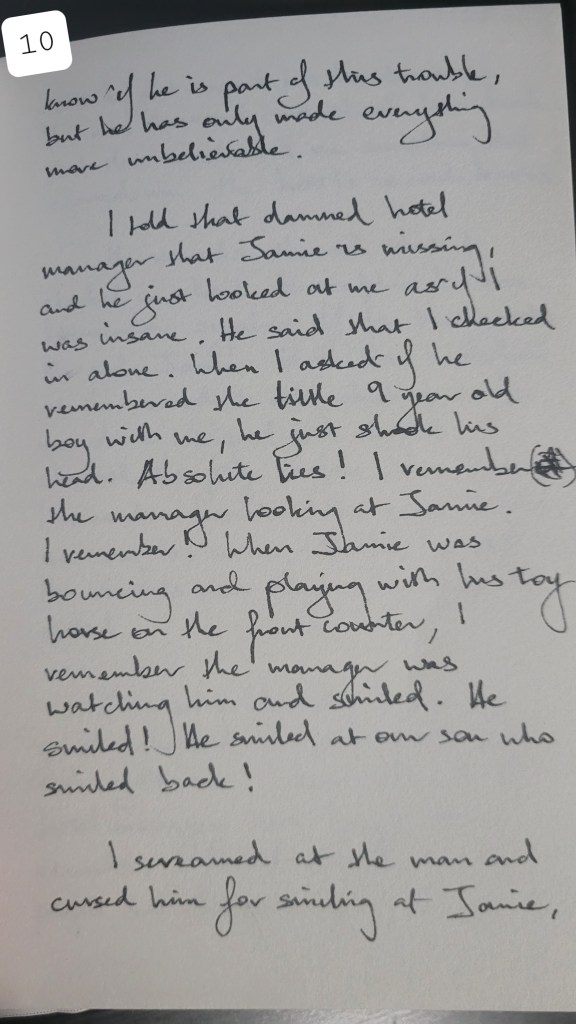 10
know if he is part of this trouble,
but he has only made everything
more unbelievable.
I told that damned hotel
manager that Jamie is missing,
and he just looked at me as if I
was insane. He said that I checked
in alone. When I asked if he
remembered the little 9 year old
boy with me, he just shook his
head. Absolute lies! I remember
the manager looking at Jamie.
I remember! When Jamie was
bouncing and playing with his toy
horse on the front counter, I
remember the manager was
watching him and smiled. He
smiled! He smiled at our son who
smiled back!
I screamed at the man and
cursed him for smiling at Jamie,